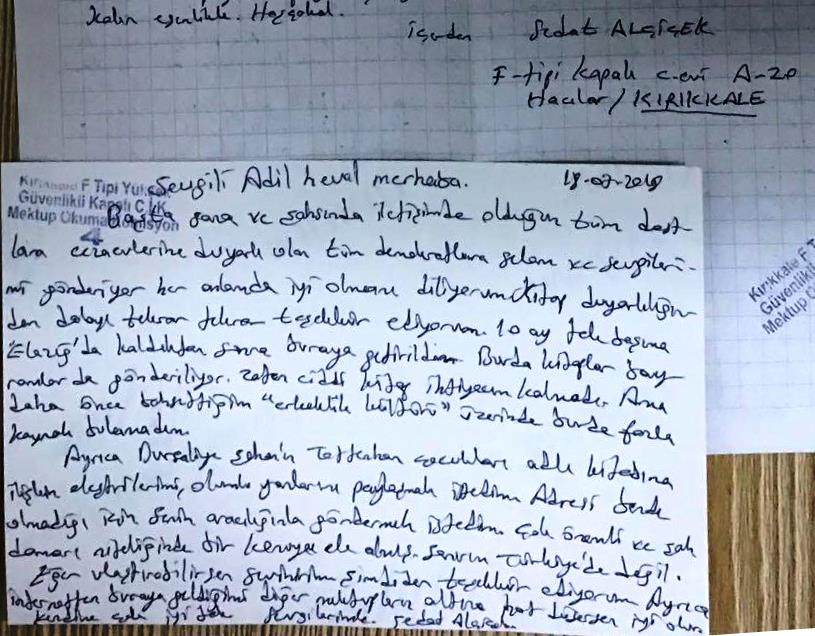 Kalın esenlikle. Hoşçakal.
içerden Sedat ALÇİÇEK
F-tipi kapalı c.evi A-20
Hacılar/KIRIKKALE
F Tipi
Güvenlikli Kapalı C.İ.K.
Mektup Okuma Komisyon
4
Sevgili Adil heval merhaba.
Başta sana ve şahsında iletişimde olduğun tüm dost
lara cezaevlerine duyarlı olan tüm demokratlara selam ve sevgileri-
mi gönderiyor her anlamda iyi olmanı diliyorum. Kitap duyarlılığın
dan dolayı tekrar tekrar teşekkür ediyorum. 10 ay tek başıma
Elazığ'da kaldıktan sonra buraya getirildim. Burda kitaplar
da gönderiliyor. Zaten ciddi kitap ihtiyacım kalmadı. Ama
daha önce bahsettiğim "erkeklik kültürü" üzerinde burda fazla
kaynak bulamadım.
Ayrıca Dursaliye çocukları adlı kitabına
ilişkin eleştirilerimi, olumlu yanlarını paylaşmak istedim. Adresi bende
olmadığı için senin aracılığınla göndermek istedim. Çok önemli ve şah
damarı niteliğinde bir konuyu ele almış. Sanırım Türkiye'de değil.
Eğer ulaştırabilirsen sevinirim şimdiden teşekkür ediyorum. Ayrıca
internetten buraya geldiğimi diğer mektupların altına not düşersen iyi olur.
Kendine çok iyi bak sevgilerimle. Sedat Alçiçek
Kırıkkale F T
Güvenlikli
Mektup O